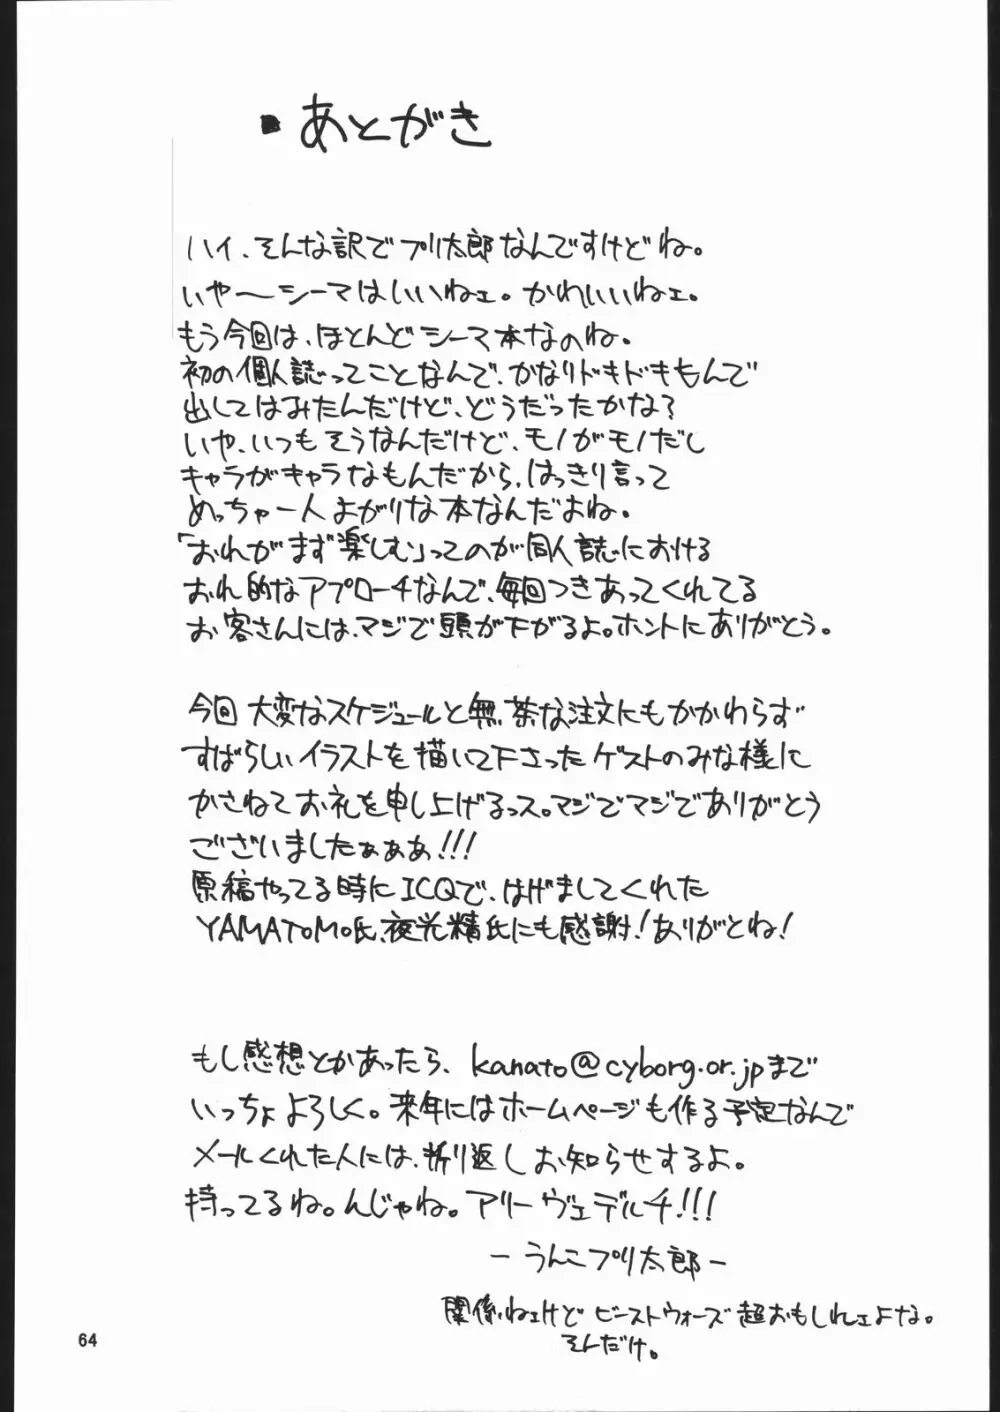 ・あとがき
ハイ、そんな訳でプリ太郎なんですけどね。
いや〜シーマはいいねェ。かわいいねェ。
もう今回は、ほとんどシーマ本なのね。
初の個人誌ってことなんで、かなりドキドキもんで
出してはみたんだけど、どうだったかな?
いや、いつもそうなんだけど、モノがモノだし
キャラがキャラなもんだから、はっきり言って
めっちゃ一人よがりな本なんだよね。
「おれがまず楽しむ」ってのが同人誌における
おれ的なアプローチなんで、毎回つきあってくれてる
お客さんには、マジで頭が下がるよ。ホントにありがとう。
今回大変なスケジュールと無茶な注文にもかかわらず
すばらしいイラストを描いて下さったゲストのみな様に
かさねてお礼を申し上げるっス。マジでマジでありがとう
ございましたぁぁぁ!!!
原稿やってる時にICQで、はげましてくれた
YAMATOMO氏、夜光精氏にも感謝!ありがとね!
もし感想とかあったら、kanato@cyborg.or.jpまで
いっちょよろしく。来年にはホームページも作る予定なんで
メールくれた人には、折り返しお知らせするよ。
待ってるね。んじゃね。アリーヴェデルチ!!!
–うんこプリ太郎–
関係ねェけどビーストウォーズ超おもしれェよな。
そんだけ。
64